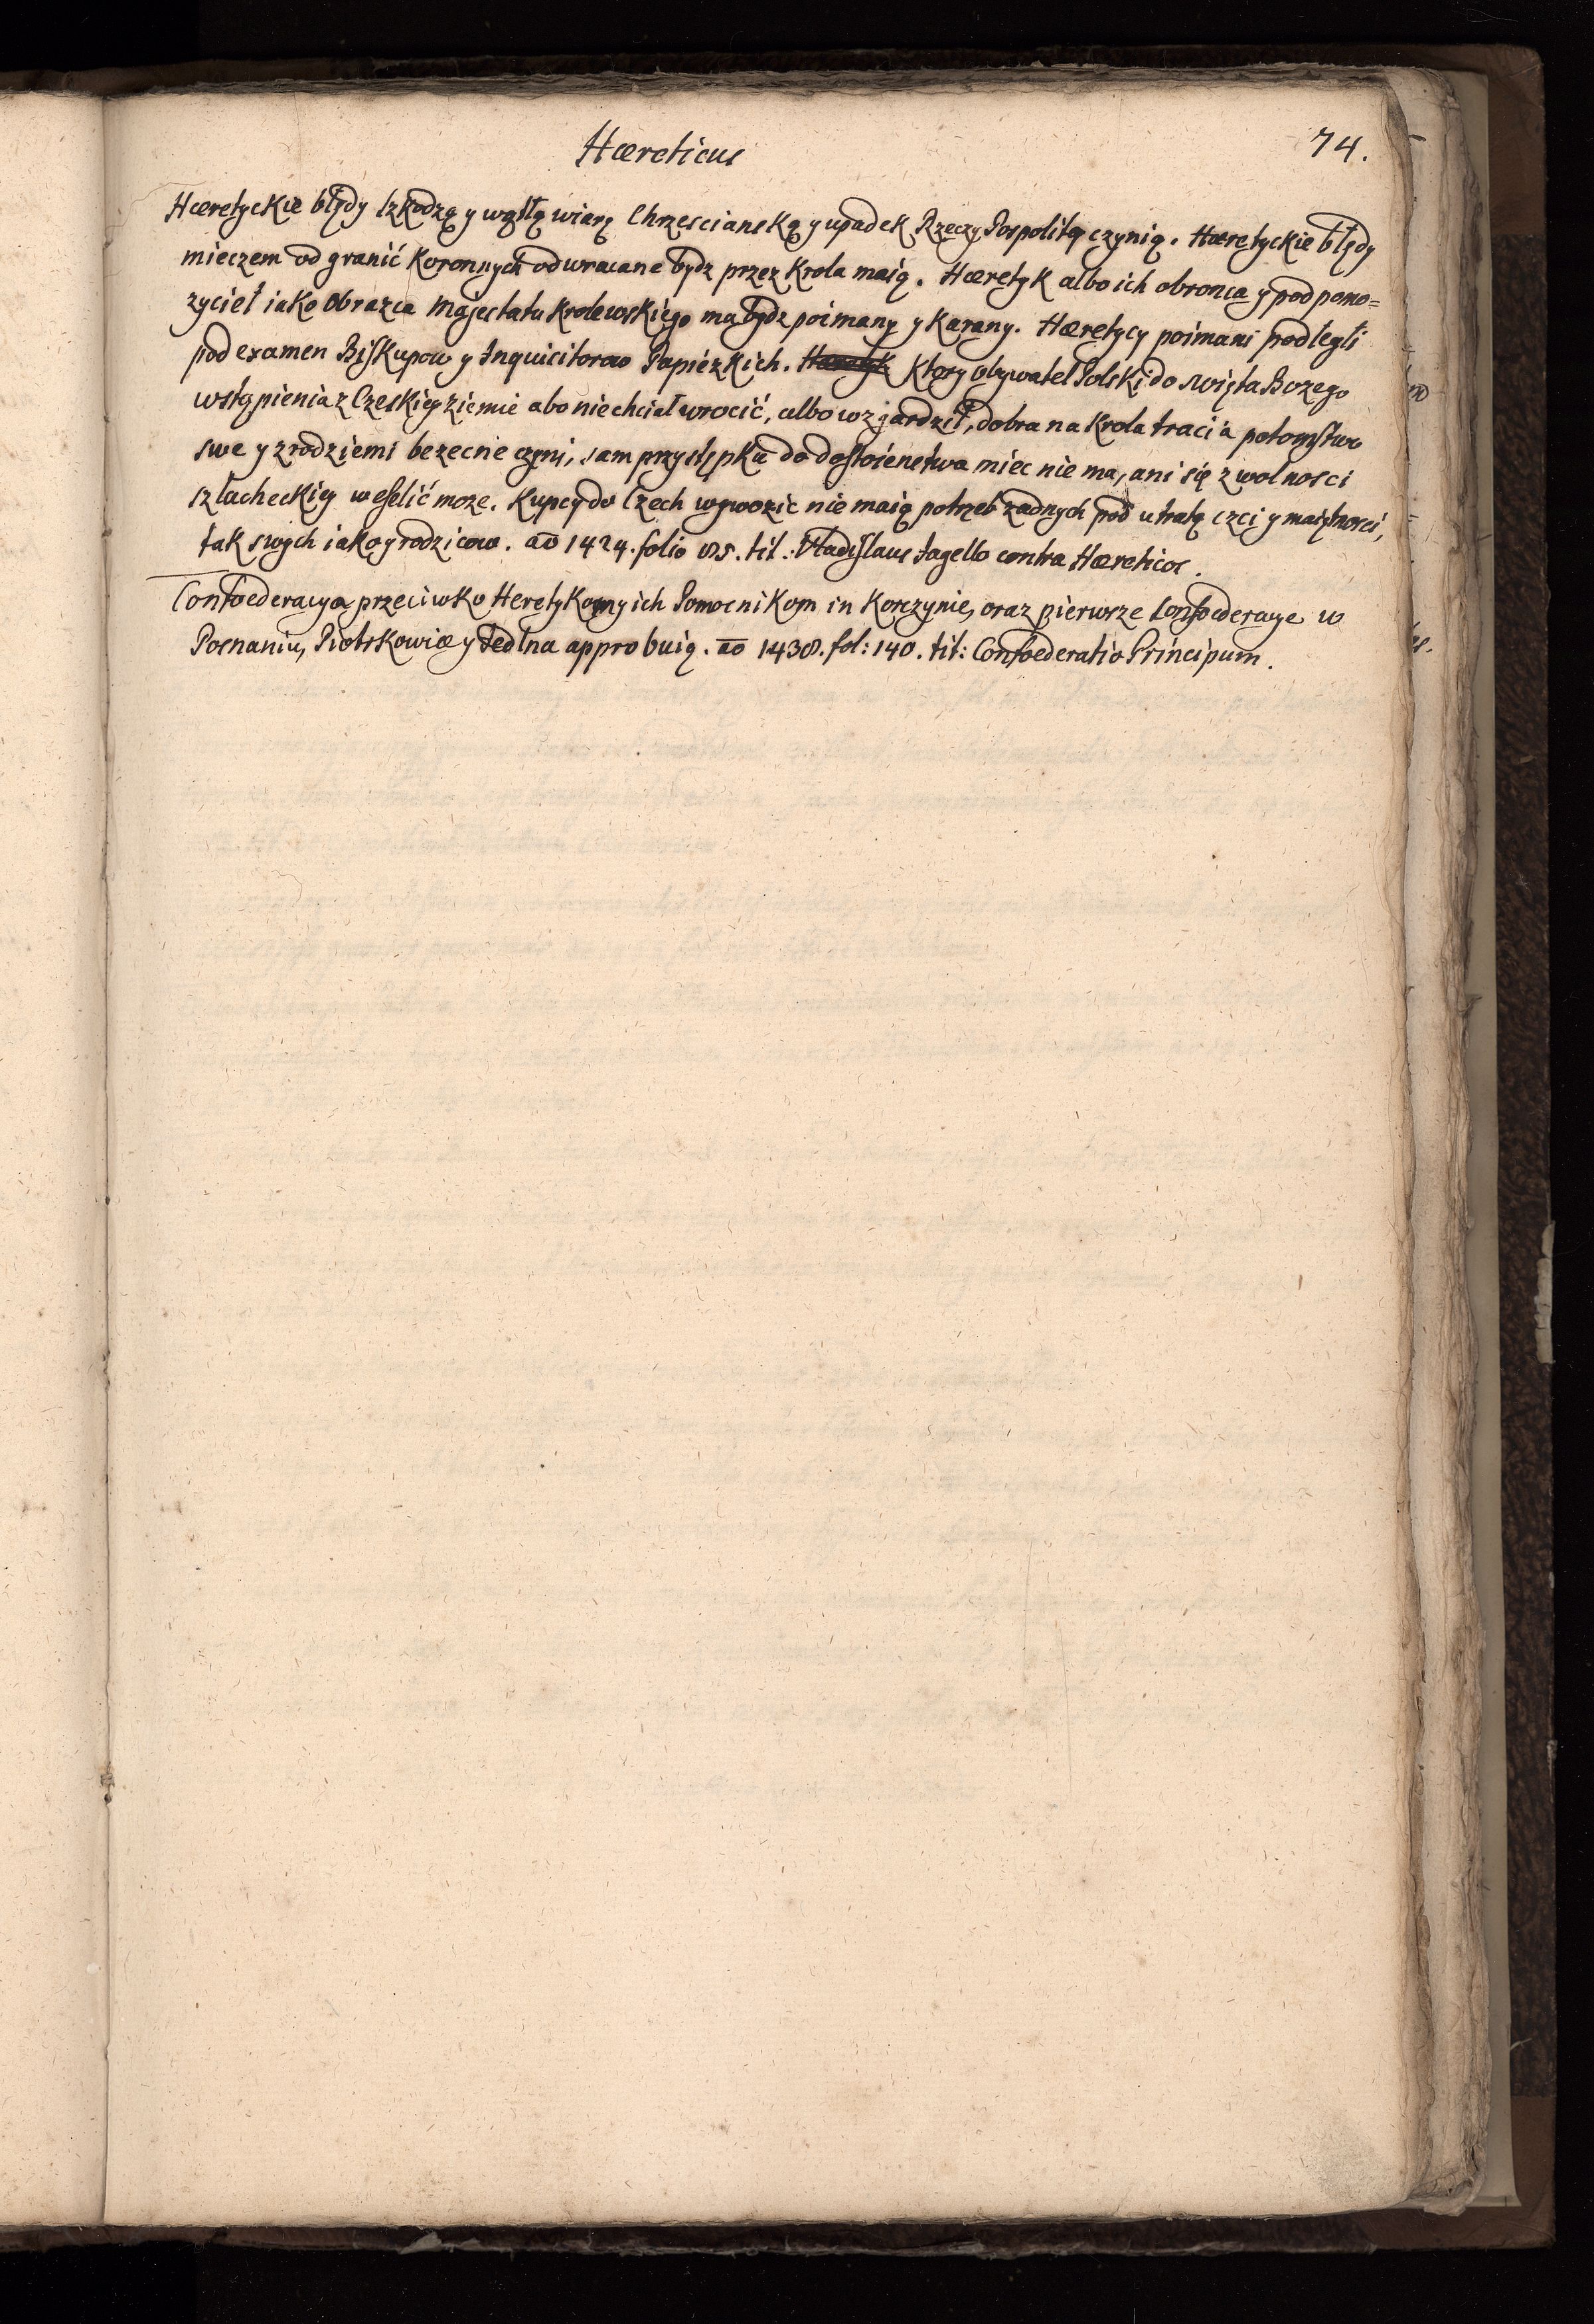 Hæreticus
74.
Hæretyckie błędy szkodzą y wątłą wiarę Chrzescianską y upadek Rzeczy Pospolitey czynią. Hæretyckie błędy
mieczem od granić Koronnych odwracane bydz przez Krola maią. Hæretyk albo ich obronca y podpomo=
zyciel iako Obrazca Majestatu Krolewskiego ma bydz poimany y Karany. Hæretycy poimani podlegli
pod examen Biskupow y Inquicitorow Papiezkich. Hæretyk Ktory Obywatel Polski do swięta Bozego
wstąpienia z Czeskiey ziemie abo niechciał wrocić, albo wzgardził, dobra na Krola traci a potomstwo
swe y zrodziemi bezecne czyni, sam przystępku do dostoienstwa miec nie ma, ani się z wolnosci
szlacheckiey weselić moze. Kupcy do Czech wywozic nie maią potrzeb zadnych pod utratą czci y maiętnosci,
tak swych iako y rodzicow. ao 1424. folio 85. tit.: Vladislaus Jagello contra Hæreticos.
Confoederacya przeciwko Heretykom y ich Pomocnikom in Korczynie, oraz pierwsze Confoederacye w
Posnaniu, Piotrkowiæ y Jedlna approbuią. ao 1438. fol: 140. tit: Confoederatio Principum.